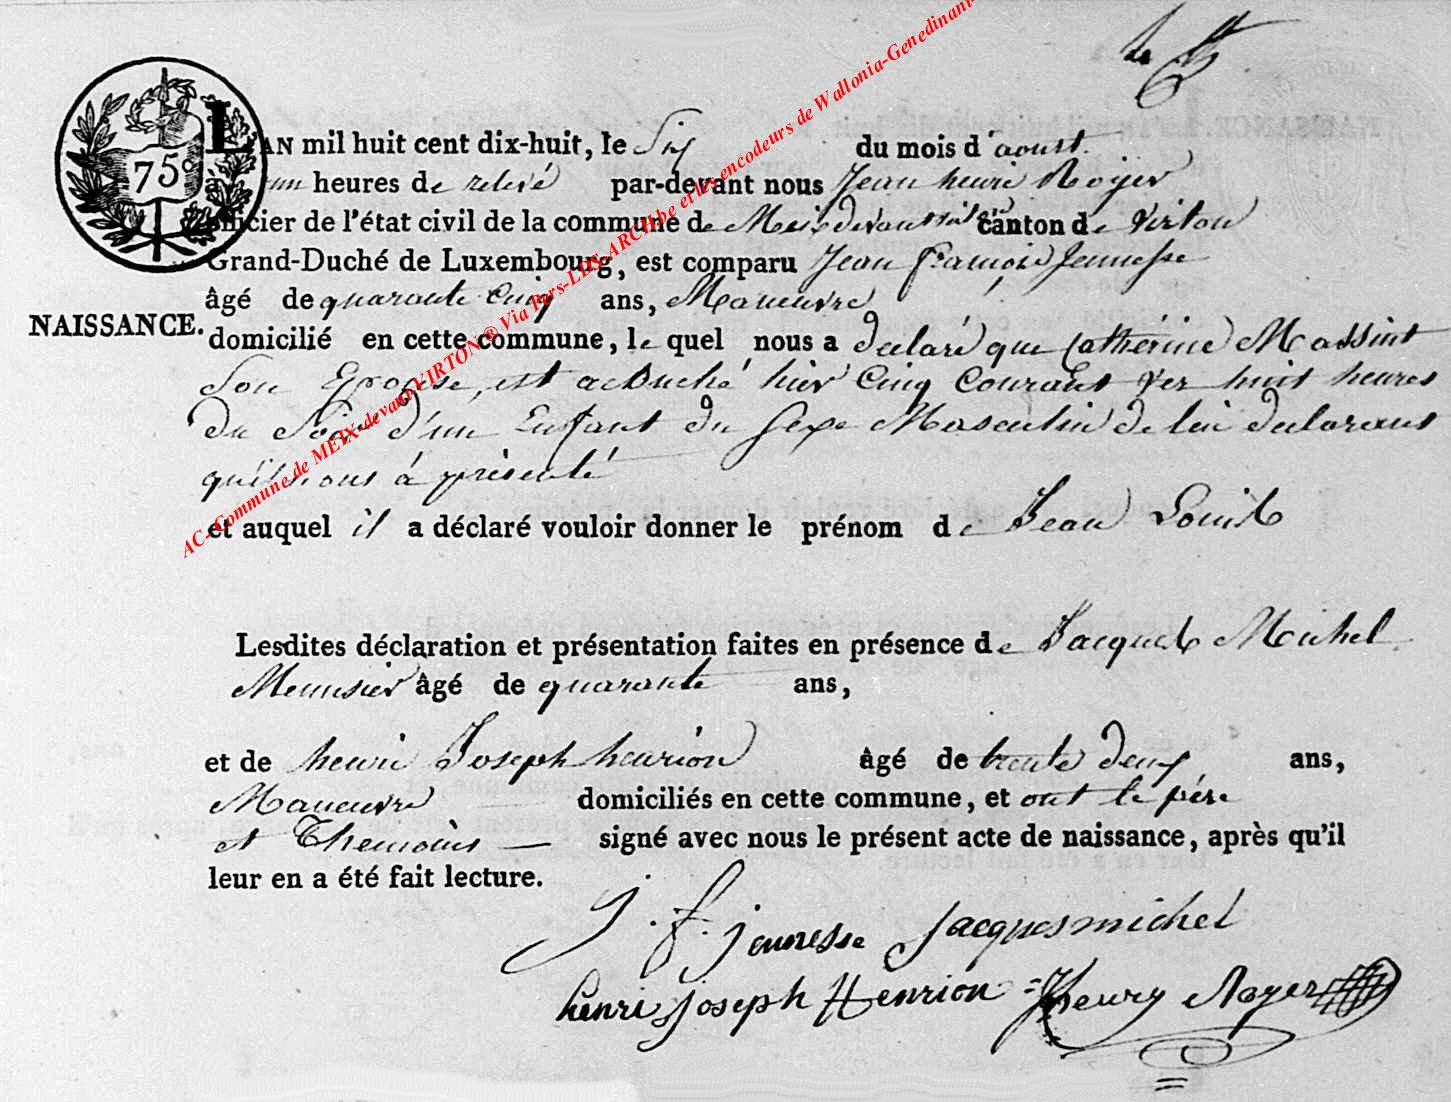 75c
L'AN mil huit cent dix-huit, le Six du mois d'aoust.
à un heures de relevé par-devant nous Jean henri Roÿer
officier de l'état civil de la commune de Meix devant virton canton de Virton
Grand-Duché de Luxembourg, est comparu Jean François Jeunesse
âgé de quarante Cinq ans, Maneuvre
NAISSANCE.
domicilié en cette commune, le quel nous a declaré que Cathérine Massint
Son Epouse, est accouché hier Cinq Courant Ver huit heures
du Soir d'un Enfant du Sexe Masculin de lui declarant
qu'il nous à présenté
et auquel il a déclaré vouloir donner le prénom de Jean Louis
Lesdites déclaration et présentation faites en présence de Jacques Michel
Meunsier âgé de quarante ans,
et de henri Joseph henrion âgé de trente deux ans,
Maneuvre domiciliés en cette commune, et ont le père
et Themoins signé avec nous le présent acte de naissance, après qu'il
leur en a été fait lecture.
J. f. jeunesse Jacquesmichel
henri joseph Henrion J henry Royer
AC-Commune de MEIX-devant-VIRTON ® Via Pers-LDS-ARCH.be et les encodeurs de Wallonia-Genedinant